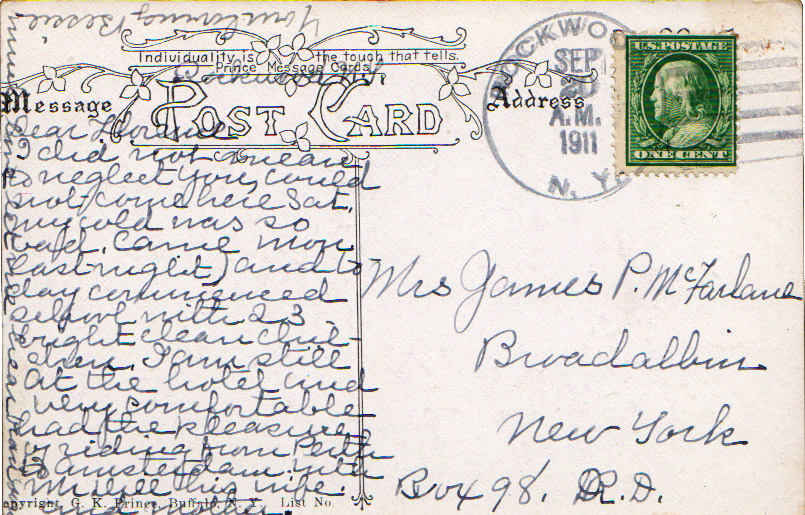 Your loving Bessie
Individuality is the touch that tells.
Prince Message Cards
Message
POST CARD
Address
Dear Florence
I did not mean
to neglect you, could
not come here Sat.
my cold was so
bad. Came Mon
last night) and to
day commenced
school with 23
bright clean chil-
dren. I am still
at the hotel and
very comfortable
had the pleasure
of riding from Perth
to Amsterdam with
Mr Hill his wife.
and
opyright, G. K. Prince, Buffalo, N. Y. List No.
ROCKWOOD
SEP
20
A.M.
1911
N. Y.
U.S. POSTAGE
ONE CENT
Mrs James P. McFarlane
Broadalbin
New York
Box 98. R.D.